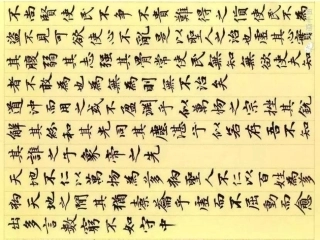 不尚賢使民不爭不貴難得之貨使民不為
盜不見可欲使心不亂是以聖人之治也虛其心實
其腹弱其志強其骨常使民無知無欲使夫知
者不敢為也為無為則無不治矣
道沖而用之或不盈淵乎似萬物之宗挫其銳
解其紛和其光同其塵湛乎似若存吾不知
其誰之子象帝之先
天地不仁以萬物為芻狗聖人不仁以百姓為芻
狗天地之間其猶橐籥乎虛而不屈動而愈
出多言數窮不如守中